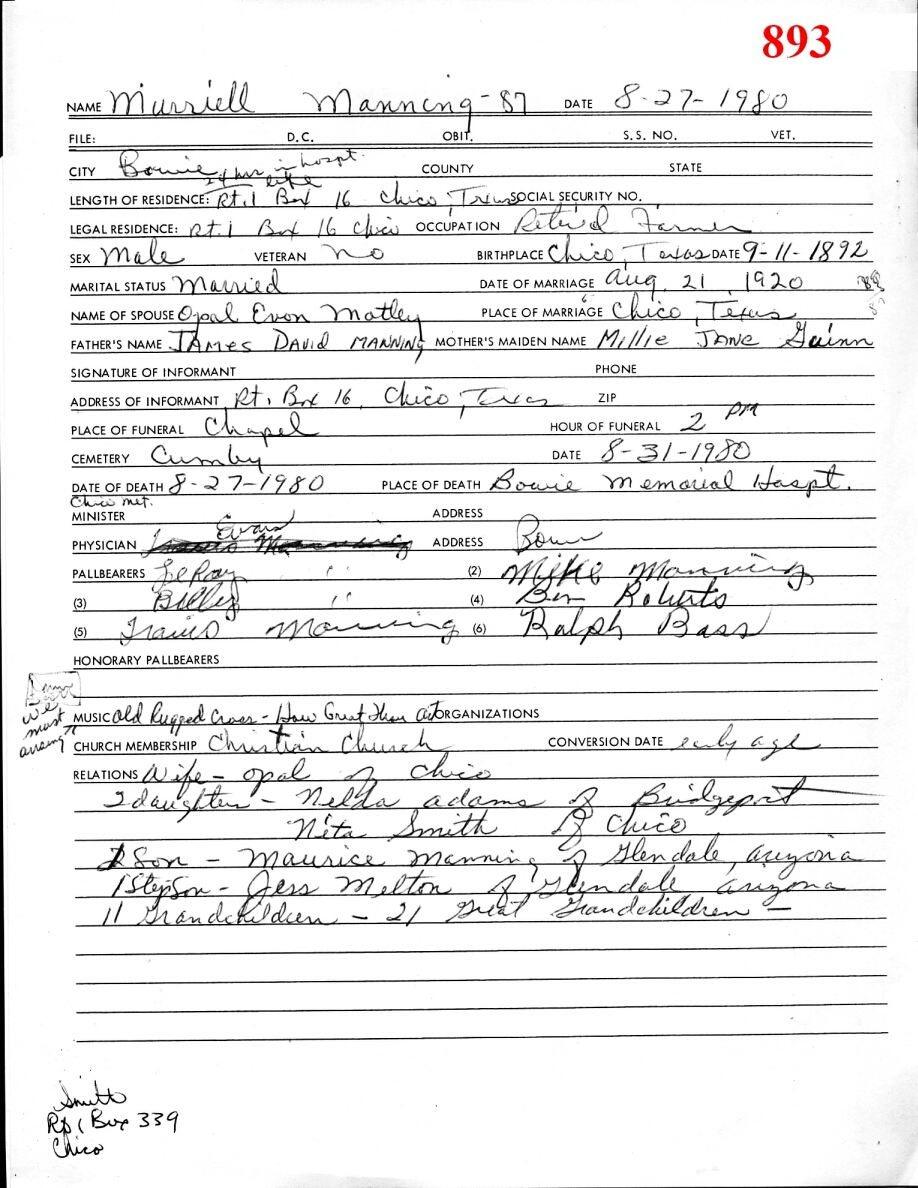 893
NAME Murriell Manning - 87 DATE 8-27-1980
FILE: D.C. OBIT. S.S. NO. VET.
CITY Bowie 24 hrs in hospt. COUNTY STATE
life
LENGTH OF RESIDENCE: Rt. 1 Box 16 Chico, Texas SOCIAL SECURITY NO.
LEGAL RESIDENCE: Rt. 1 Box 16 Chico OCCUPATION Retired Farmer
SEX Male VETERAN No BIRTHPLACE Chico, Texas DATE 9-11-1892
MARITAL STATUS Married DATE OF MARRIAGE Aug. 21, 1920 88
87
NAME OF SPOUSE Opal Evon Matley PLACE OF MARRIAGE Chico, Texas
FATHER'S NAME JAMES DAVID MANNING MOTHER'S MAIDEN NAME Millie JANE Guinn
SIGNATURE OF INFORMANT PHONE
ADDRESS OF INFORMANT Rt. Box 16, Chico, Texas ZIP
PLACE OF FUNERAL Chapel HOUR OF FUNERAL 2 PM
CEMETERY Cumby DATE 8-31-1980
DATE OF DEATH 8-27-1980 PLACE OF DEATH Bowie Memorial Hospt.
Chico Met.
MINISTER ADDRESS
PHYSICIAN Evans ADDRESS Bowie
PALLBEARERS LeRay " (2) Mike Manning
(3) Billy " (4) Ben Roberts
(5) Travis Manning (6) Ralph Bass
HONORARY PALLBEARERS
we must arrang
MUSIC Old Rugged Cross - How Great Thou Art ORGANIZATIONS
CHURCH MEMBERSHIP Christian Church CONVERSION DATE early age
RELATIONS Wife - Opal of Chico
2 daughters - Nelda Adams of Bridgeport
Neta Smith of Chico
1 Son - Maurice Manning of Glendale, Arizona
1 StepSon - Jess Melton of Glendale Arizona
11 Grandchildren - 21 Great Grandchildren -
Smith
Rt 1 Box 339
Chico